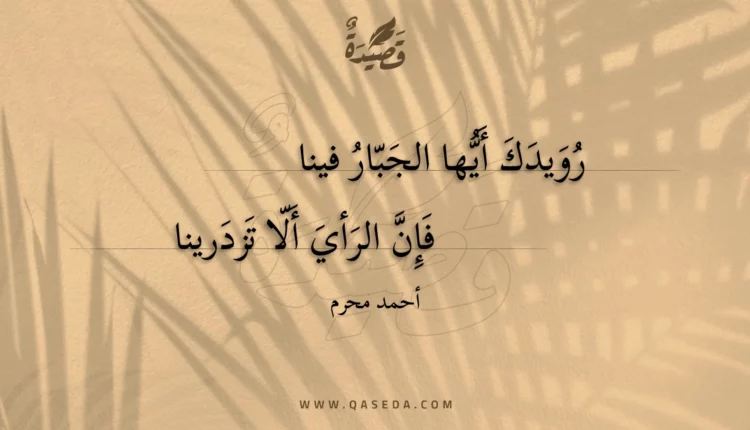 قَصِيْدَةٌ
رُوَيدَكَ أَيُّها الجَبّارُ فينا
فَإِنَّ الرَأيَ أَلّا تَزدَرينا
أحمد محرم
WWW.QASEDA.COM